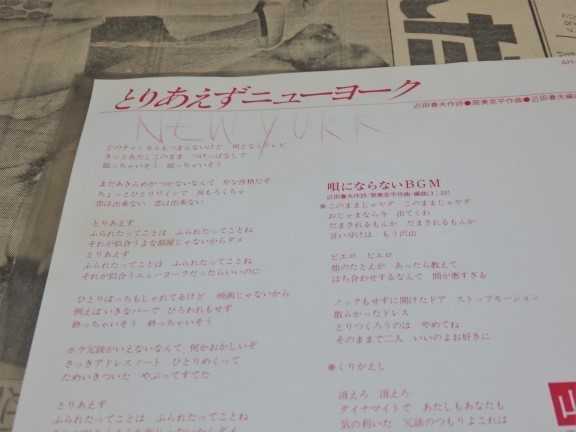 とりあえずニューヨーク
近田春夫作詩●筒美京平作曲●近田春夫編
NEW YORK
どのチャンネルもつまんないけど 何となくテレビ
きっとあたしこのまま つけっぱなしで
眠っちゃいそう 眠っちゃいそう
まだあきらめがつかないなんて やな性格だぞ
ちょっとひとりワインで 涙もろくちゃ
恋は出来ない 恋は出来ない
とりあえず
ふられたってことは ふられたってことね
それが似合うような部屋じゃないからダメ
とりあえず
ふられたってことは ふられたってことね
それが似合うニューヨークだったらいいのに
ひとりぼっちもしゃれてるけど 映画じゃないから
例えばいきなバーで ひろわれもせず
終っちゃいそう 終っちゃいそう
ホラ冗談がいえないなんて 何かおかしいぞ
さっきアドレスノート ひとりめくって
ためいきついた やぶってすてた
とりあえず
ふられたってことは ふられたってことね
唄にならないBGM
※このままじゃヤダ このままじゃヤダ
おじゃまなら今 出てくわ
だまされるもんか だまされるもんか
言い分けは もう沢山
ピエロ ピエロ
他のたとえが あったら教えて
はち合わせするなんて 間が悪すぎる
ノックもせずに開けたドア ストップモーション
散らかったドレス
とりつくろうのは やめてね
そのままで二人 いいのよお好きに
※くりかえし
消えろ 消えろ
ダイナマイトで あたしもあなたも
気の利いた 冗談のつもりよこれは
山